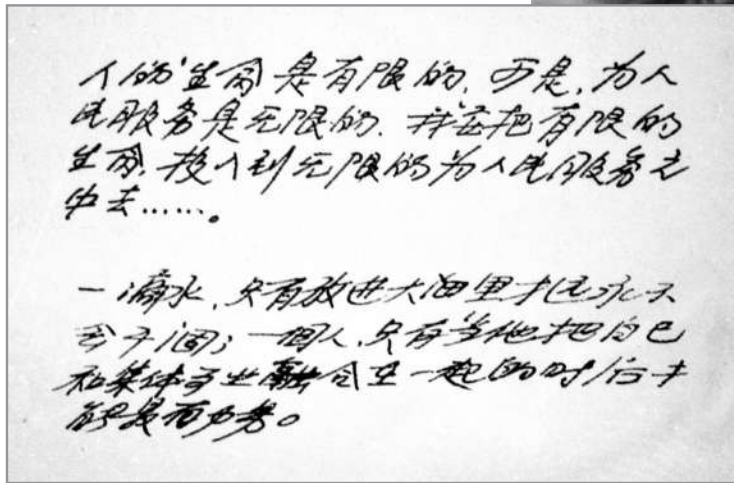 人的生命是有限的，可是，为人
民服务是无限的，我要把有限的
生命，投入到无限的为人民服务之
中去……。
一滴水，只有放进大海里才能永不
会干涸；一个人，只有当他把自己
和集体事业融合在一起的时候才
能最有力量。